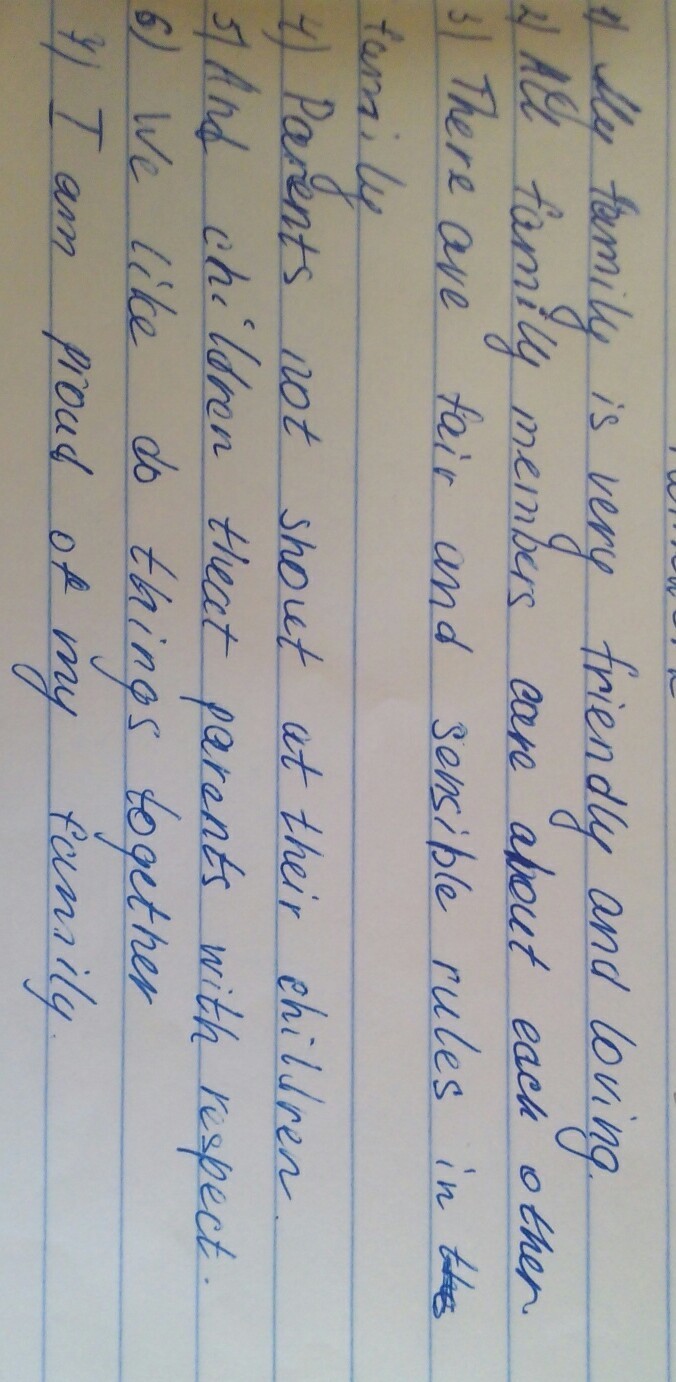 1) My family is very friendly and loving.
2) All family members care about each other.
3) There are fair and sensible rules in the
family
4) Parents not shout at their children.
5) And children theat parents with respect.
6) We like do things together
7) I am proud of my family.